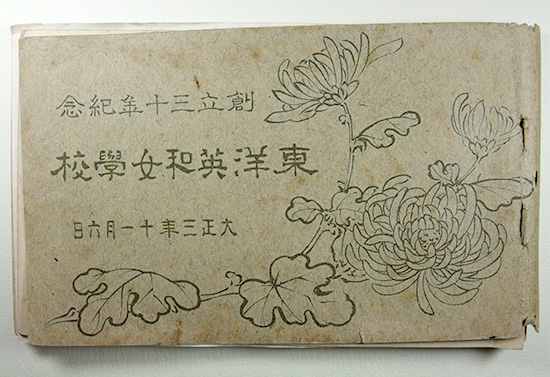 創立三十年紀念
東洋英和女學校
大正三年十一月六日